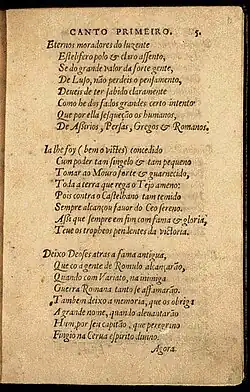 CANTO PRIMEIRO. 5.
Eternos moradores do luzente
Estelifero polo & claro assento,
Se do grande valor da forte gente,
De Luso, não perdeis o pensamento,
Deueis de ter sabido claramente
Como he dos fados grandes certo intento
Que por ella se esqueção os humanos,
De Assirios, Persas, Gregos & Romanos.
Ia lhe foy (bem o vistes) concedido
Cum poder tam singelo & tam pequeno
Tomar ao Mouro forte & guarnecido,
Toda a terra que rega o Tejo ameno:
Pois contra o Castelhano tam temido
Sempre alcançou fauor do Ceo sereno.
Assi que sempre em fim com fama & gloria,
Teue os tropheos pendentes da victoria.
Deixo Deoses atras a fama antiga,
Que co a gente de Romulo alcançarão,
Quando com Variato, na inimiga
Guerra Romana tanto se afamarão.
Tambem deixo a memoria, que os obriga
A grande nome, quando aleuantarão
Hum, por seu capitão, que peregrino
Fingio na Cerua espirito diuino.
Agora